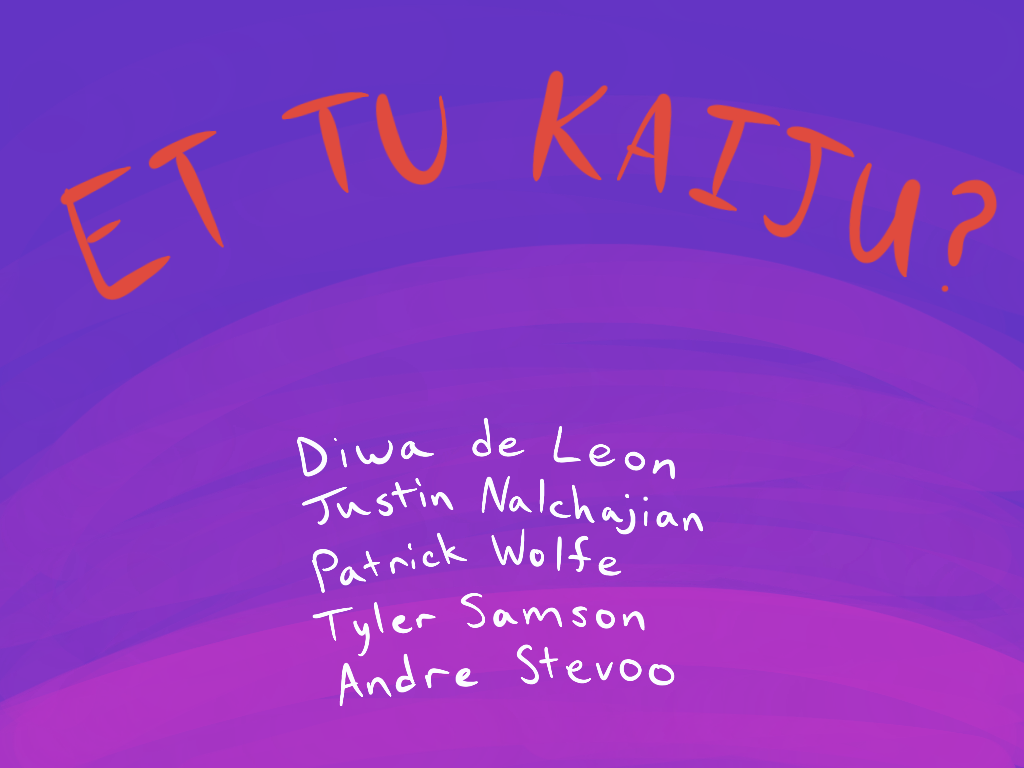 ET TU KAIJU?
Diwa de Leon
Justin Nalchajian
Patrick Wolfe
Tyler Samson
Andre Stevoo